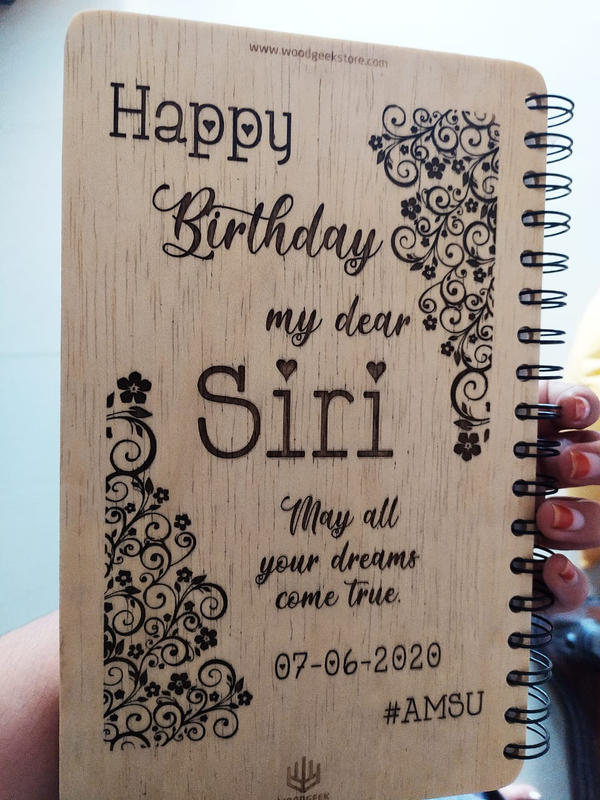 www.woodgeekstore.com
Happy
Birthday
my dear
Siri
May all
your dreams
come true.
07-06-2020
#AMSU
WOODGEEK